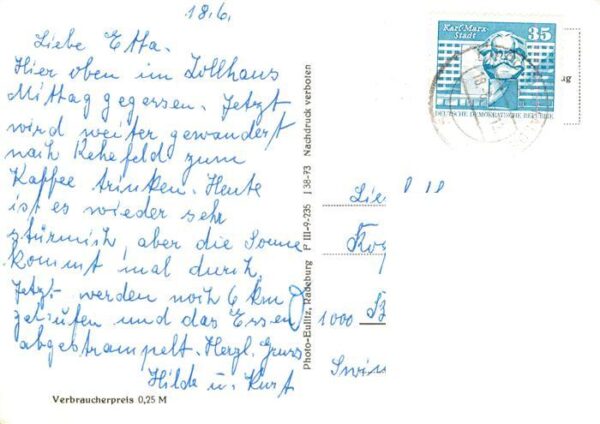 18.6.
Liebe Etta.
Hier oben im Zollhaus
Mittag gegessen. Jetzt
wird weiter gewandert
nach Rehefeld zum
Kaffee trinken. Heute
ist es wieder sehr
stürmisch, aber die Sonne
kommt mal durch.
Jetzt werden noch 6 km
gelaufen und das Essen
abgestrampelt. Herzl. Gruss
Hilde u. Kurt
Verbraucherpreis 0,25 M
Photo-Eulitz, Radeburg P III-9-235 J 38-73 Nachdruck verboten
Karl-Marx-
Stadt
35
DEUTSCHE DEMOKRATISCHE REPUBLIK
ug
1000